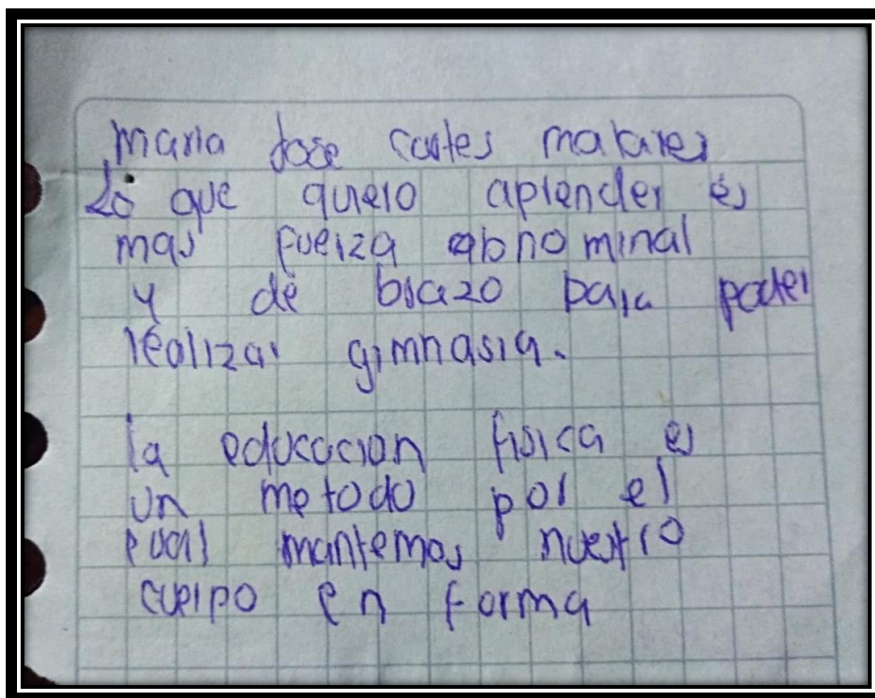 maria jose cortes
lo que quiero aprender es
mas fuerza abnominal
y de brazo para poder
realizar gimnasia.
la educacion fisica es
un metodo por el
cual mantemos nuestro
cuerpo en forma